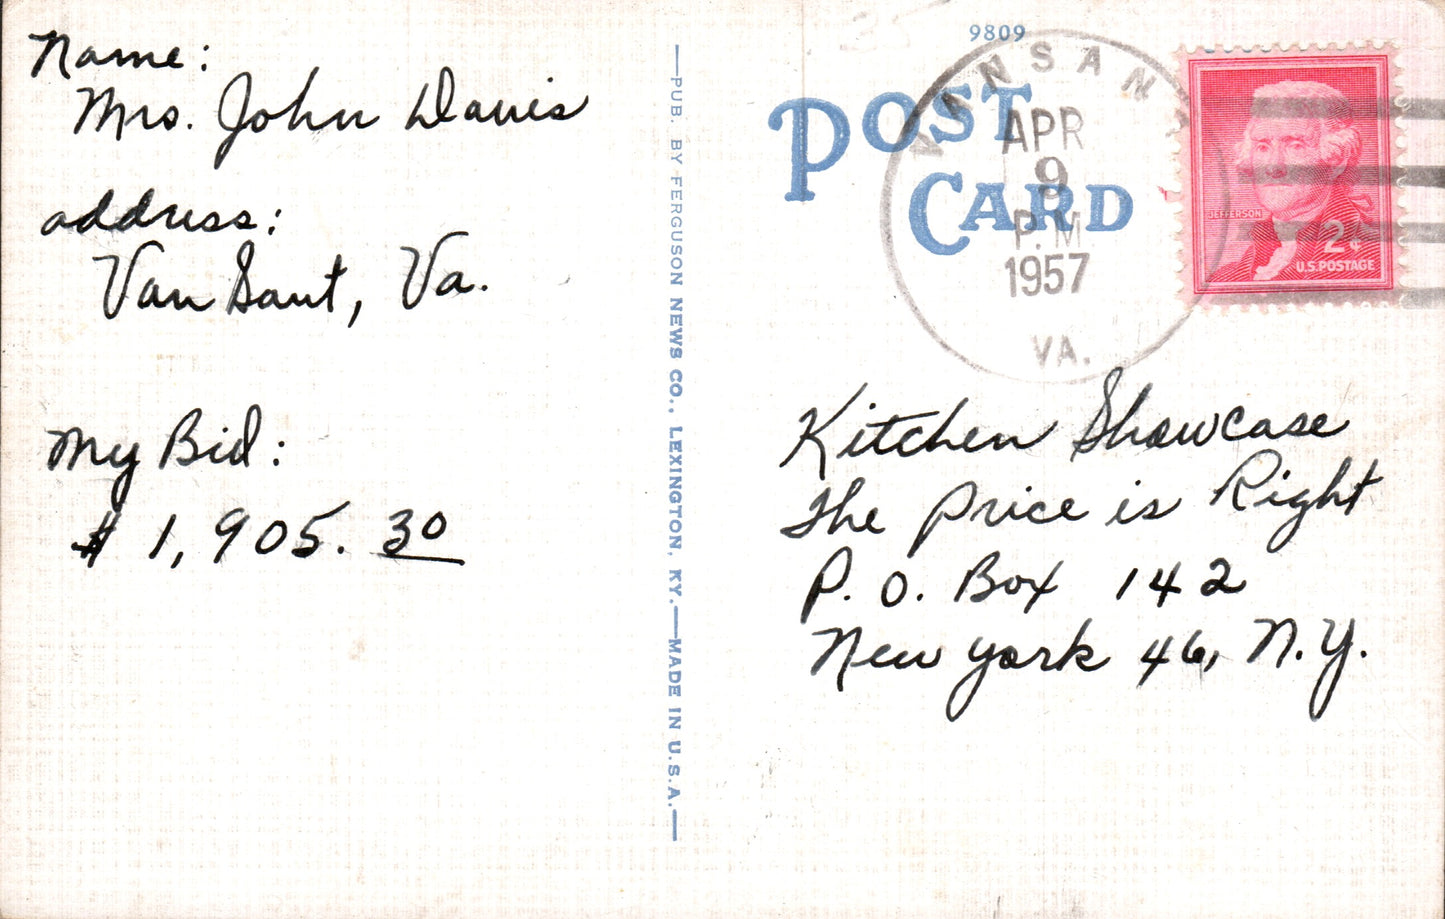 Name:
Mrs. John Davis
address:
Van Sant, Va.
My Bid:
$ 1,905.30
PUB. BY FERGUSON NEWS CO., LEXINGTON, KY.—MADE IN U.S.A.
9809
POST
CARD
VANSANT
APR
9
P.M
1957
VA.
JEFFERSON
2¢
U.S. POSTAGE
Kitchen Showcase
The Price is Right
P. O. Box 142
New York 46, N.Y.